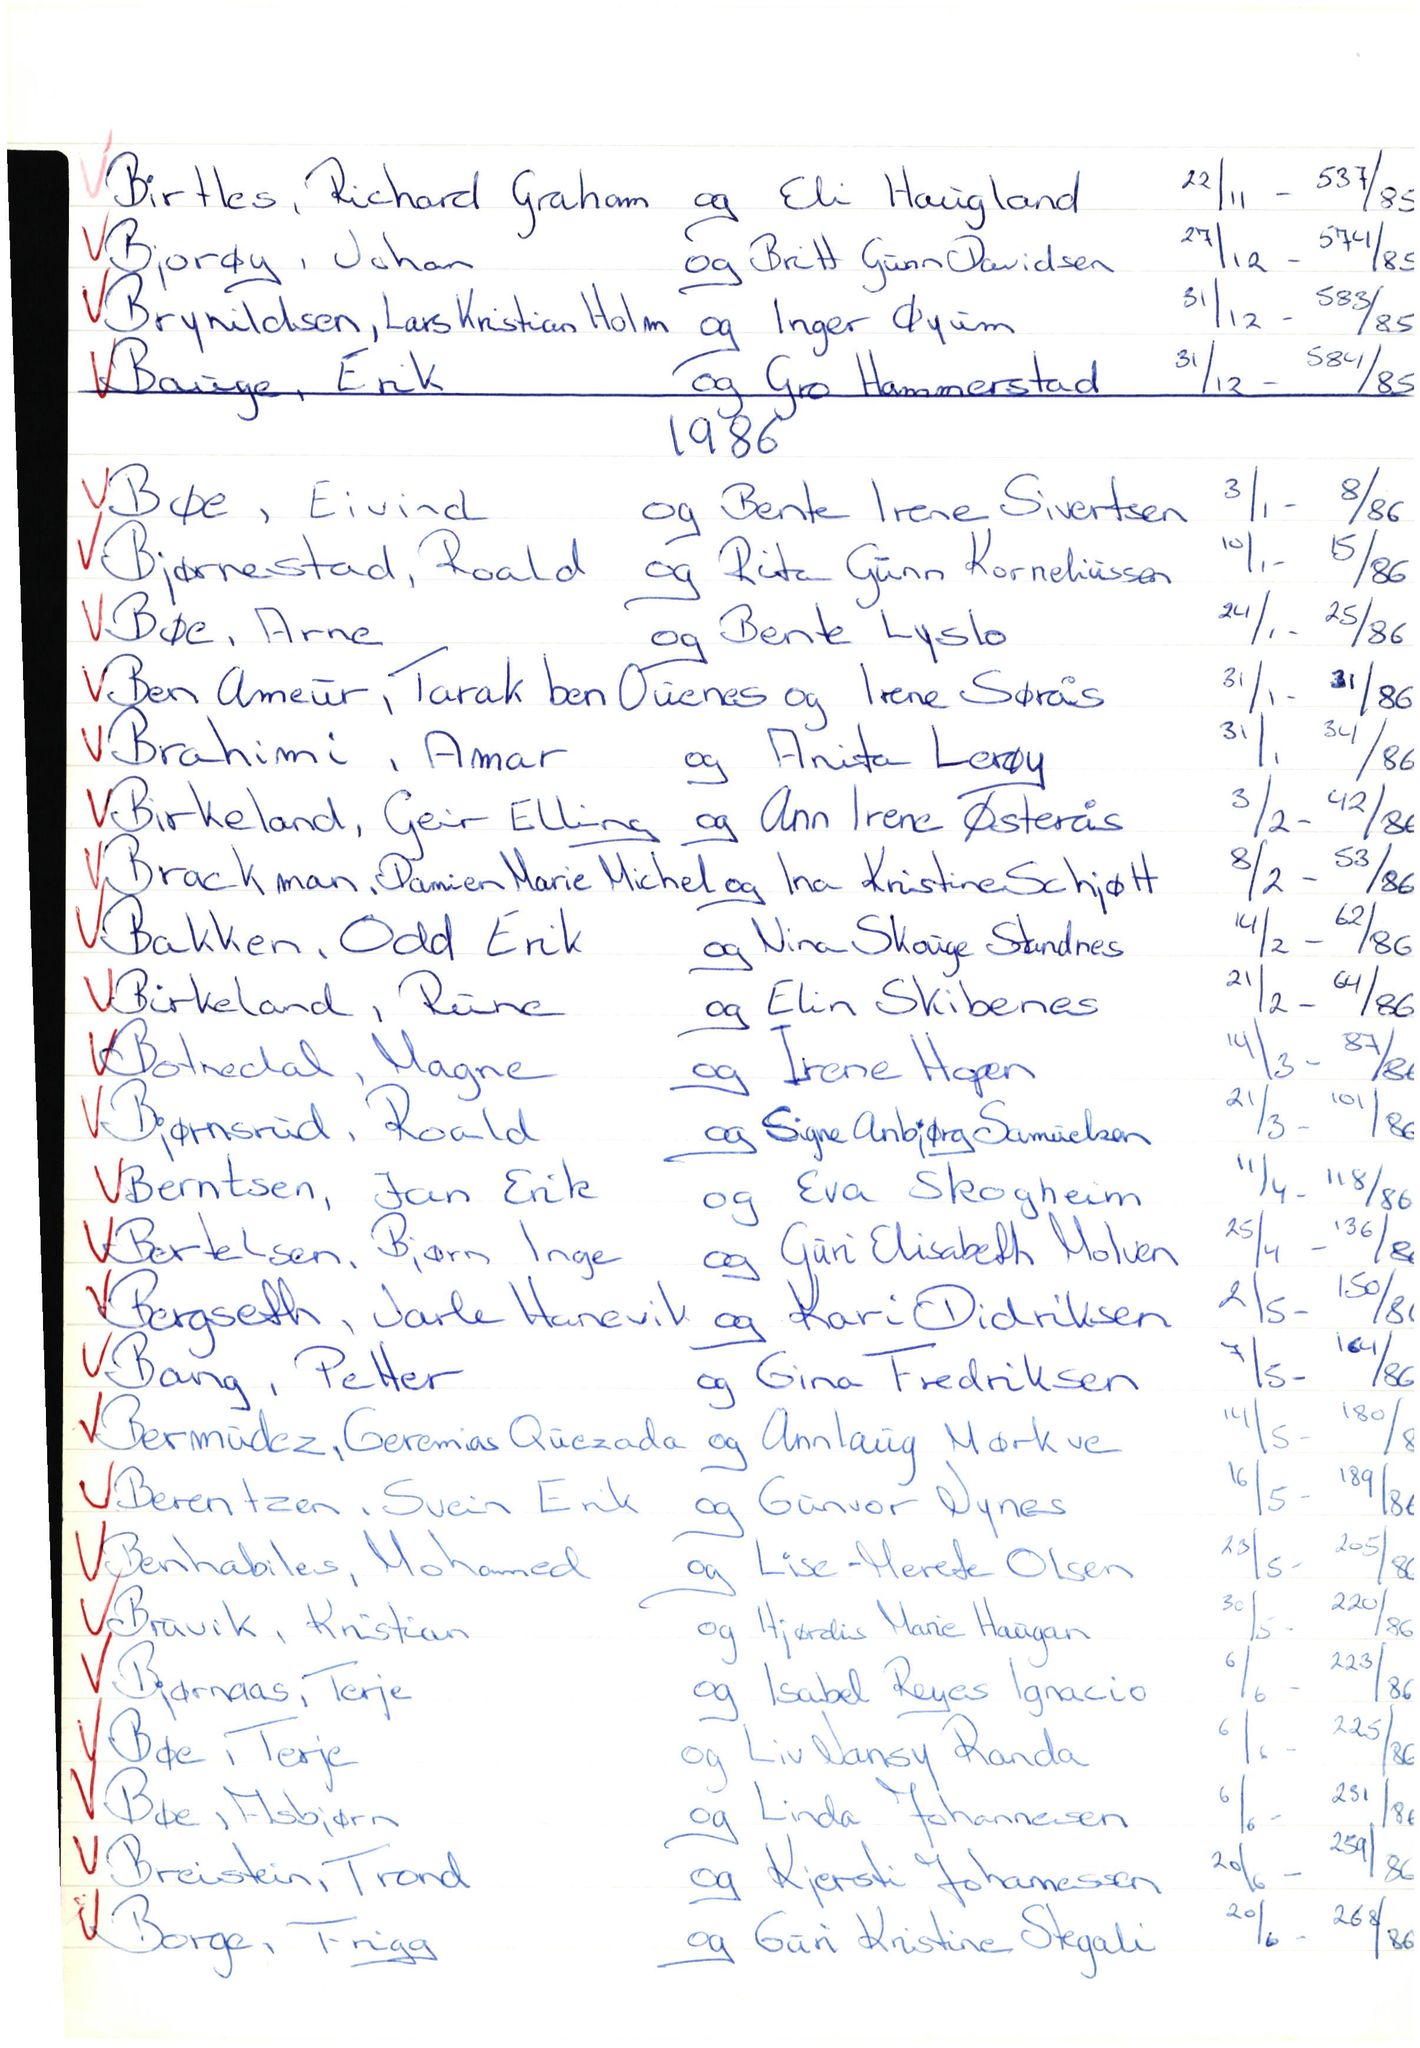 Birtles, Richard Graham og Eli Haugland 22/11 - 537/85
Bjorøy, Johan og Britt Gunn Davidsen 27/12 - 574/85
Brynildsen, Lars Kristian Holm og Inger Øyum 31/12 - 583/85
Bauge, Erik og Gro Hammerstad 31/12 - 584/85
1986
Bøe, Eivind og Bente Irene Sivertsen 3/1 - 8/86
Bjørnestad, Roald og Rita Gunn Korneliussen 10/1 - 15/86
Bøe, Arne og Bente Lyslo 24/1 - 25/86
Ben Ameur, Tarak ben Ouenes og Irene Sørås 31/1 - 31/86
Brahimi, Amar og Anita Lerøy 31/1 34/86
Birkeland, Geir Elling og Ann Irene Østerås 3/2 - 42/86
Brackman, Damien Marie Michel og Ina Kristine Schjøtt 8/2 - 53/86
Bakken, Odd Erik og Nina Skauge Standnes 14/2 - 62/86
Birkeland, Rune og Elin Skibenes 21/2 - 64/86
Botnedal, Magne og Irene Hopen 14/3 - 87/86
Bjørnsrud, Roald og Signe Anbjørg Samuelsen 21/3 - 101/86
Berntsen, Jan Erik og Eva Skogheim 11/4 - 118/86
Bertelsen, Bjørn Inge og Guri Elisabeth Molven 25/4 - 136/86
Bergseth, Jarle Hanevik og Kari Didriksen 2/5 - 150/86
Bang, Petter og Gina Fredriksen 7/5 - 164/86
Bermudez, Geremias Quezada og Annlaug Mørkve 14/5 - 180/8
Berentzen, Svein Erik og Gunvor Nynes 16/5 - 189/86
Benhabiles, Mohamed og Lise-Merete Olsen 23/5 - 205/86
Bruvik, Kristian og Hjørdis Marie Haugan 30/5 - 220/86
Bjørnaas, Terje og Isabel Reyes Ignacio 6/6 - 223/86
Bøe, Terje og Liv Nansy Randa 6/6 - 225/86
Bøe, Asbjørn og Linda Johannesen 6/6 - 231/86
Breistein, Trond og Kjersti Johannessen 20/6 - 259/86
Borge, Frigg og Guri Kristine Stegali 20/6 - 268/86